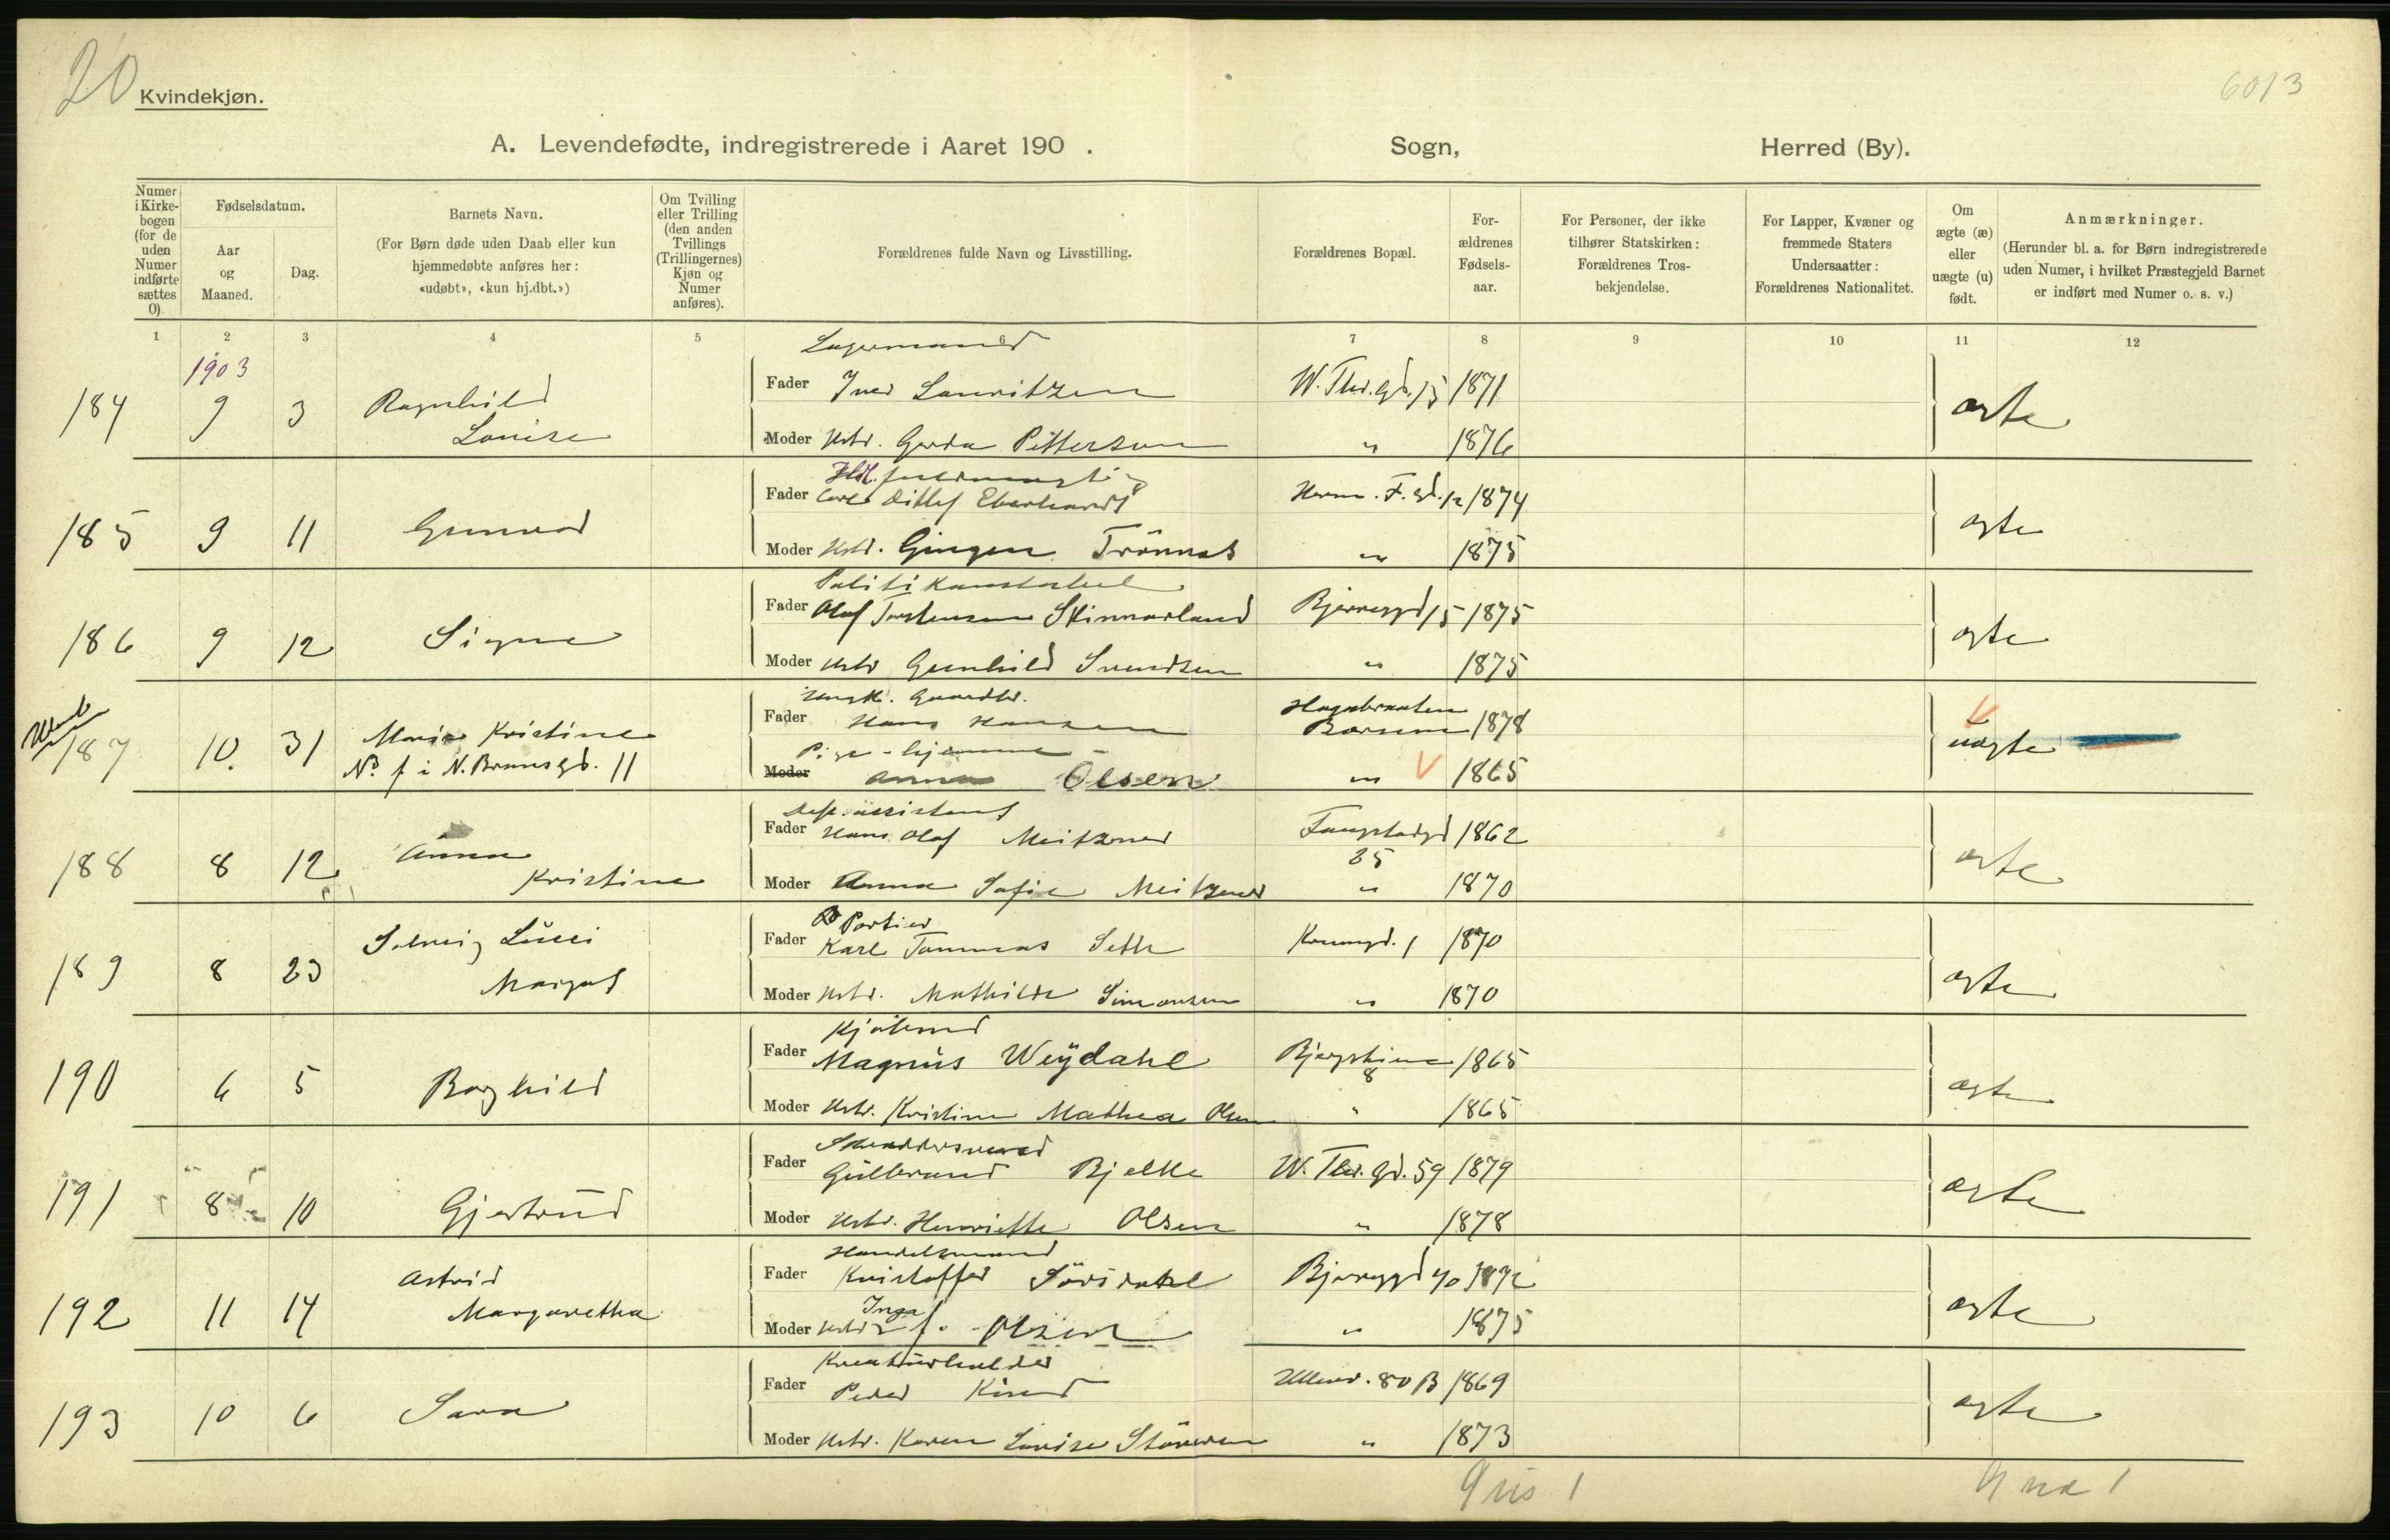 20
Kvindekjøn.
6013
A. Levendefødte, indregistrerede i Aaret 190 .
Sogn,
Herred (By).
Numer i Kirkebogen (for de uden Numer indførte sættes 0).
Fødselsdatum.
Aar og Maaned.
Dag.
Barnets Navn.
(For Børn døde uden Daab eller kun hjemmedøbte anføres her: «udøbt», «kun hj.dbt.»)
Om Tvilling eller Trilling (den anden Tvillings (Trillingernes) Kjøn og Numer anføres).
Forældrenes fulde Navn og Livsstilling.
Forældrenes Bopæl.
Forældrenes Fødselsaar.
For Personer, der ikke tilhører Statskirken: Forældrenes Trosbekjendelse.
For Lapper, Kvæner og fremmede Staters Undersaatter: Forældrenes Nationalitet.
Om ægte (æ) eller uægte (u) født.
Anmærkninger.
(Herunder bl. a. for Børn indregistrerede uden Numer, i hvilket Præstegjeld Barnet er indført med Numer o. s. v.)
1 2 3 4 5 6 7 8 9 10 11 12
1903
Lagermand
184 9 3 Ragnhild Louise
Fader Iver Lauritzen W. Thr. gd. 15 1871 ægte
Moder Hstr. Gerda Pettersen " 1876
Hdl. fuldmægtig
185 9 11 Gunvor
Fader Carl Ditlef Eberhardt Herm. F. gd. 12 1874 ægte
Moder Hstr. " 1875
Politikonstabel
186 9 12 Signe
Fader Olof Torstensen Skinnarland Bjerregd 15 1875 ægte
Moder Hstr Gunhild Svendsen " 1875
Ungk. Gaardbr.
187 10. 31 Marie Kristine
No f i N. Brunsgd. 11
Fader Hans Hansen Hagabraaten Bærum 1878 uægte
Pige - hjemme -
Moder Anna Olsen " 1865
assistent
188 8 12 Anna Kristine
Fader Hans Olaf Meitzner 25 1862 ægte
Moder Anna Sofie Meitzner " 1870
Portier
189 8 23 Solveig Lucci Margot
Fader Karl Tommas Seth 1 1870 ægte
Moder Hstr. Mathilde Simonsen " 1870
Kjøbmd
190 6 5 Borghild
Fader Magnus Weydahl 8 1865 ægte
Moder Hstr. Kristine Mathea Olsen " 1865
Skræddersvend
191 8 10 Gjertrud
Fader Gulbrand Bjelke W. Thr. gd. 59 1879 ægte
Moder Hstr. Henriette Olsen " 1878
Handelsmand
192 11 14 Astrid Margaretha
Fader Kristoffer Sörsdahl Bjerregd 40 1872 ægte
Moder Hstr Inga f. Olsen " 1875
Kreaturholder
193 10 6 Sara
Fader Peder Ullevr. 80 B 1869 ægte
Moder Hstr. Karen Lovise " 1873